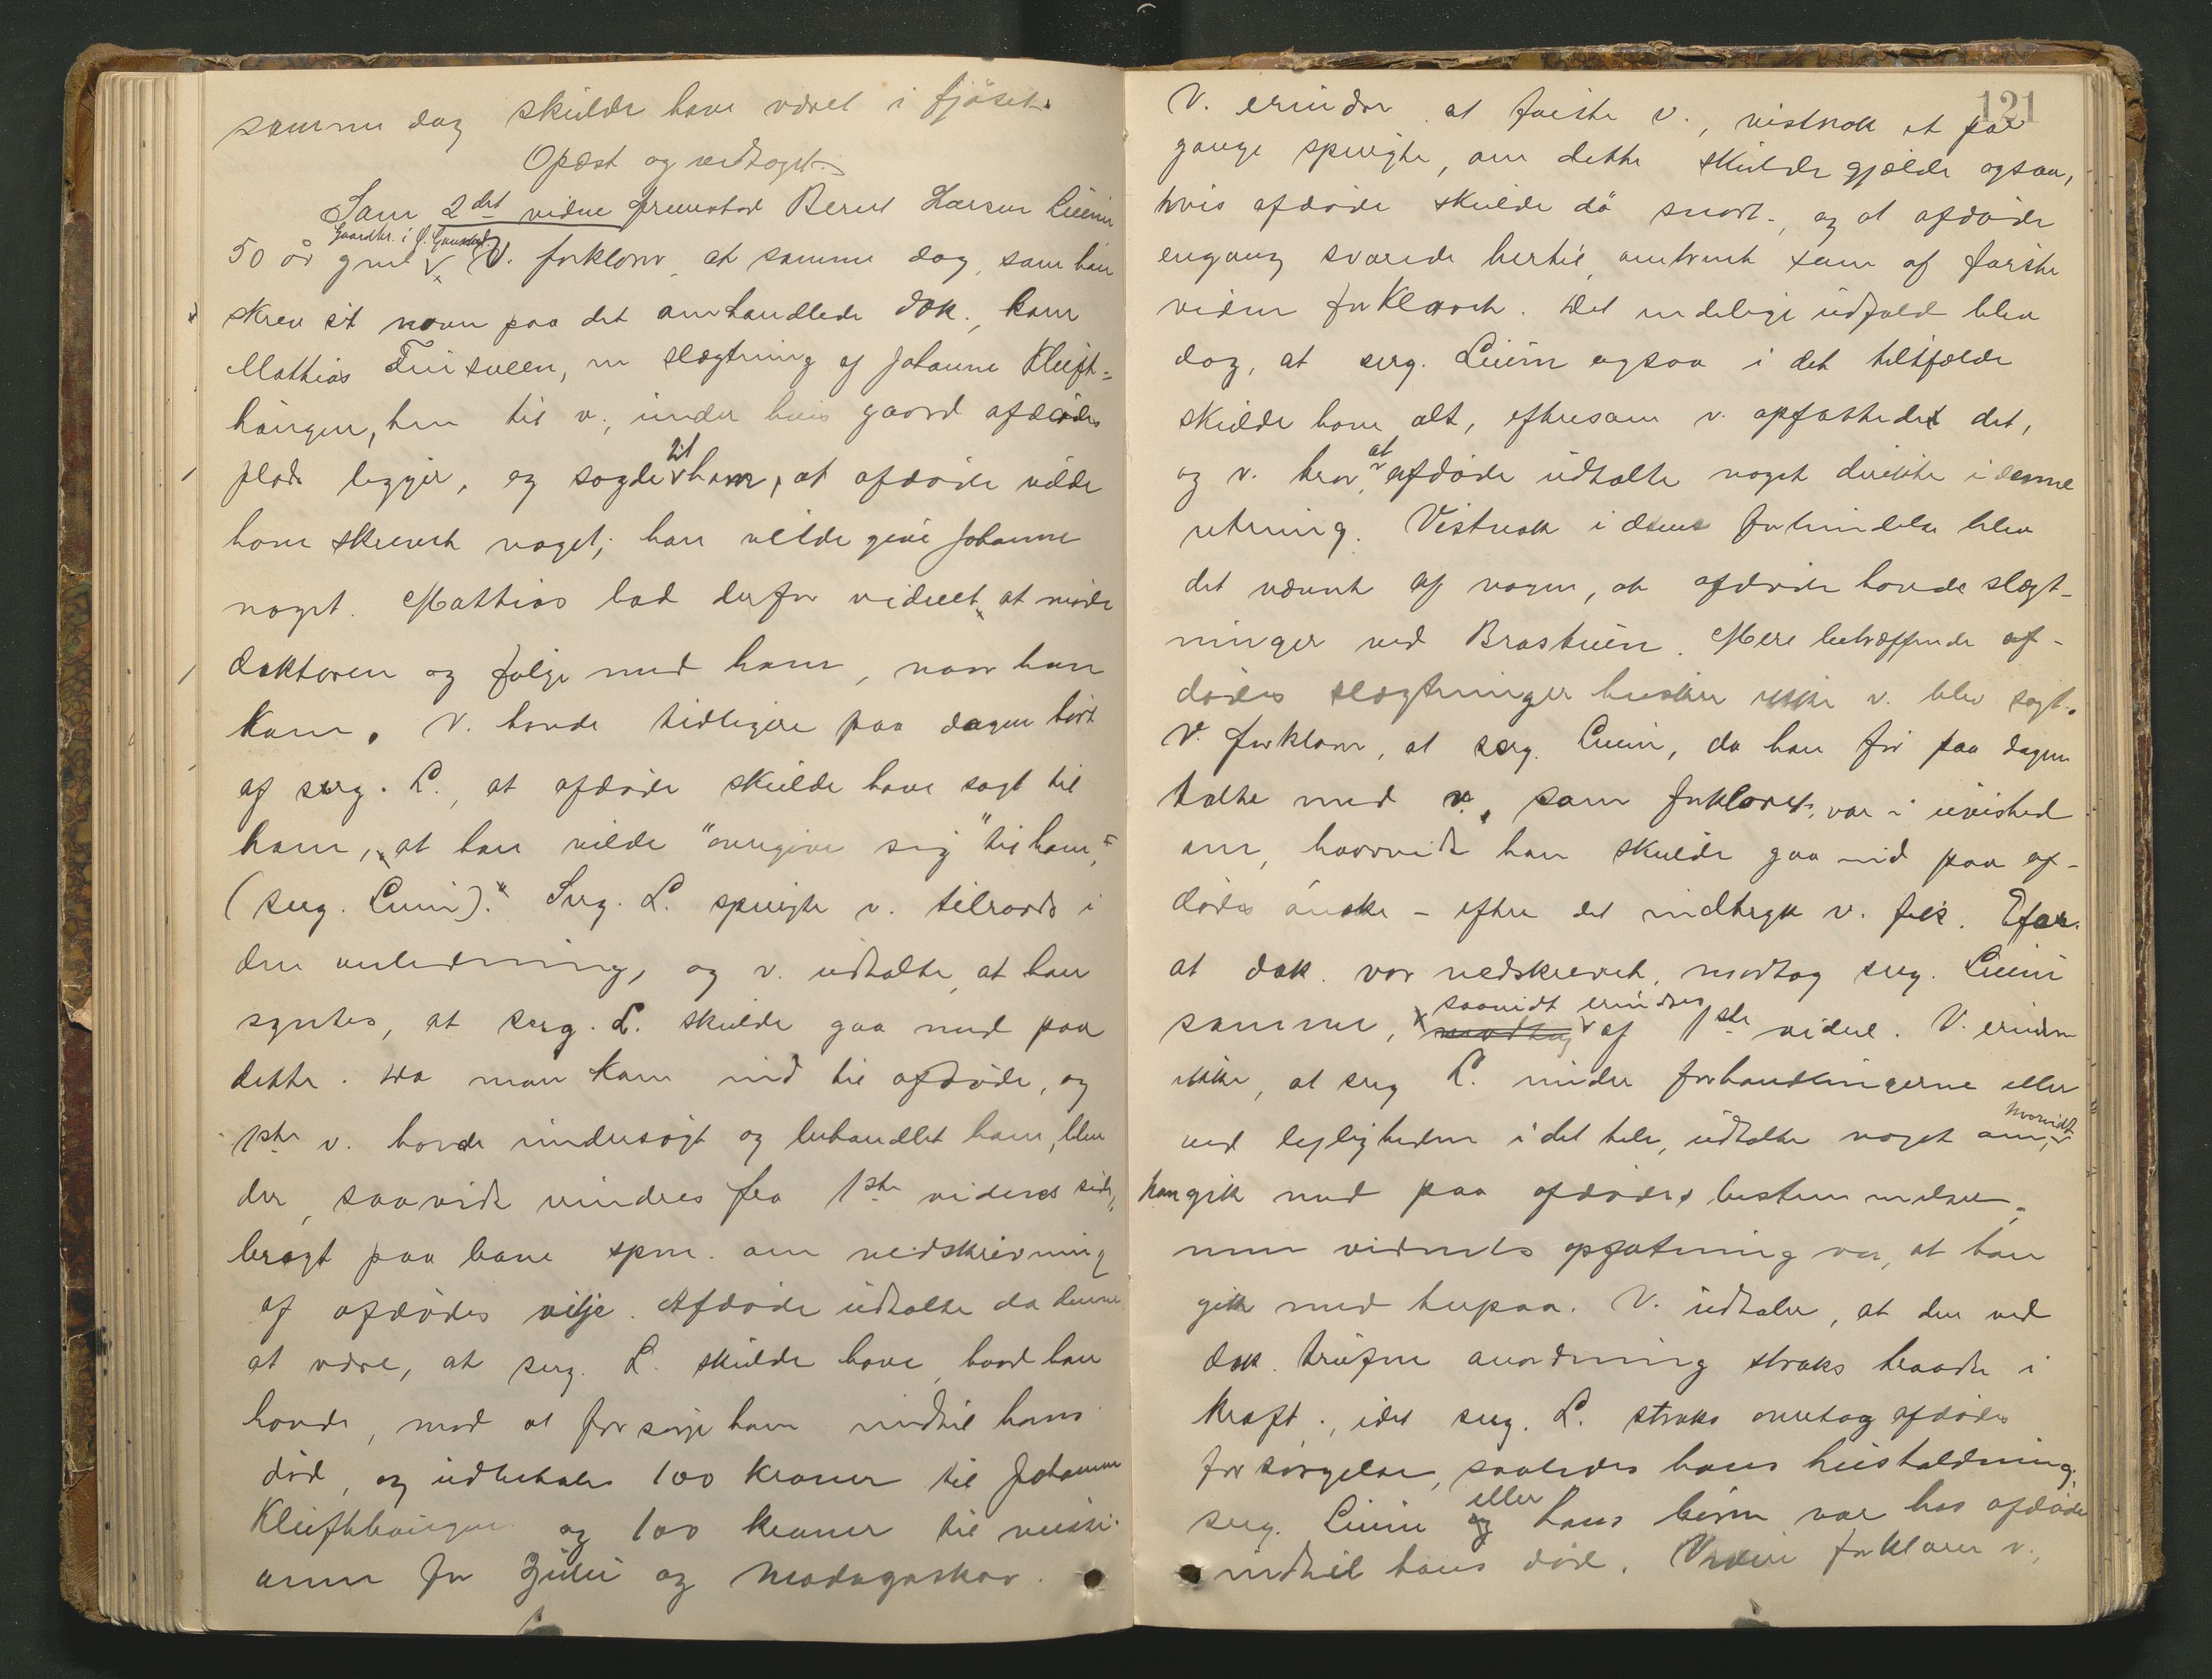 samme dag skulde have været i fjøset.
Oplæst og vedtaget.
Som 2det vidne fremstod Bernt Larsen Lium
50 år gml Gaardbr. i Ø. Gausdal. V. forklarer, at samme dag, som han
skrev sit navn paa det omhandlede dok., kom
Mathias Tuisveen, en slægtning af Johanne Kluft-
haugen, hen til v., under hvis gaard afdødes
plads ligger, og sagde til ham, at afdøde vilde
have skrevet noget; han vilde give Johanne
noget. Mathias bad derfor vidnet at møde
doktoren og følge med ham, naar han
kom. V. havde tidligere paa dagen hørt
af serg. L., at afdøde skulde have sagt til
ham, at han vilde "overgive sig" til ham,
(serg. Lium)." Serg. L. spurgte v. tilraads i
den anledning, og v. udtalte, at han
syntes, at serg. L. skulde gaa med paa
dette. Da man kom ind til afdøde, og
1ste v. havde undersøgt og behandlet ham, blev
der, saavidt erindres fra 1ste vidnes side,
bragt paa bane spm. om nedskrivning
af afdødes vilje. Afdøde udtalte da denne
at være, at serg. L. skulde have, hvad han
havde, mod at forsørge ham indtil hans
død, og udbetale 100 kroner til Johanne
Klufthaugen og 100 kroner til missi-
onen for Zulu og Madagaskar.
121
V. erindrer at første v., vistnok et par
gange spurgte, om dette skulde gjælde ogsaa,
hvis afdøde skulde dø snart, og at afdøde
engang svarede hertil, omtrent som af første
vidne forklaret. Det endelige udfald blev
dog, at serg. Lium ogsaa i det tilfælde
skulde have alt, eftersom v. opfattedet det,
og v. tror, at afdøde udtalte noget direkte i denne
retning. Vistnok i denne forbindelse blev
det nævnt af nogen, at afdøde havde slægt-
ninger ved Brastuen. Mere betræffende af-
dødes slægtninger husker ikke v. blev sagt.
V. forklarer, at serg. Lium, da han før paa dagen
talte med v., som forklaret, var i uvished
om, hvorvidt han skulde gaa ind paa af-
dødes ønske - efter det indtryk v. fik. Efter
at dok. var nedskrevet, modtog serg. Lium
samme, modtog saavidt erindres af 1ste vidne. V. erindrer
ikke, at serg L. under forhandlingerne eller
ved leiligheden i det hele, udtalte noget om, hvorvidt
han gik med paa afdødes bestemmelser,
men vidnets opfatning var, at han
gik med herpaa. V. udtaler, at den ved
dok. trufne anordning straks traadte i
kraft, idet serg. L. straks overtog afdødes
forsørgelse, saaledes hans husholdning.
serg. Lium og eller hans børn var hos afdøde
indtil hans død. forklarer v.,